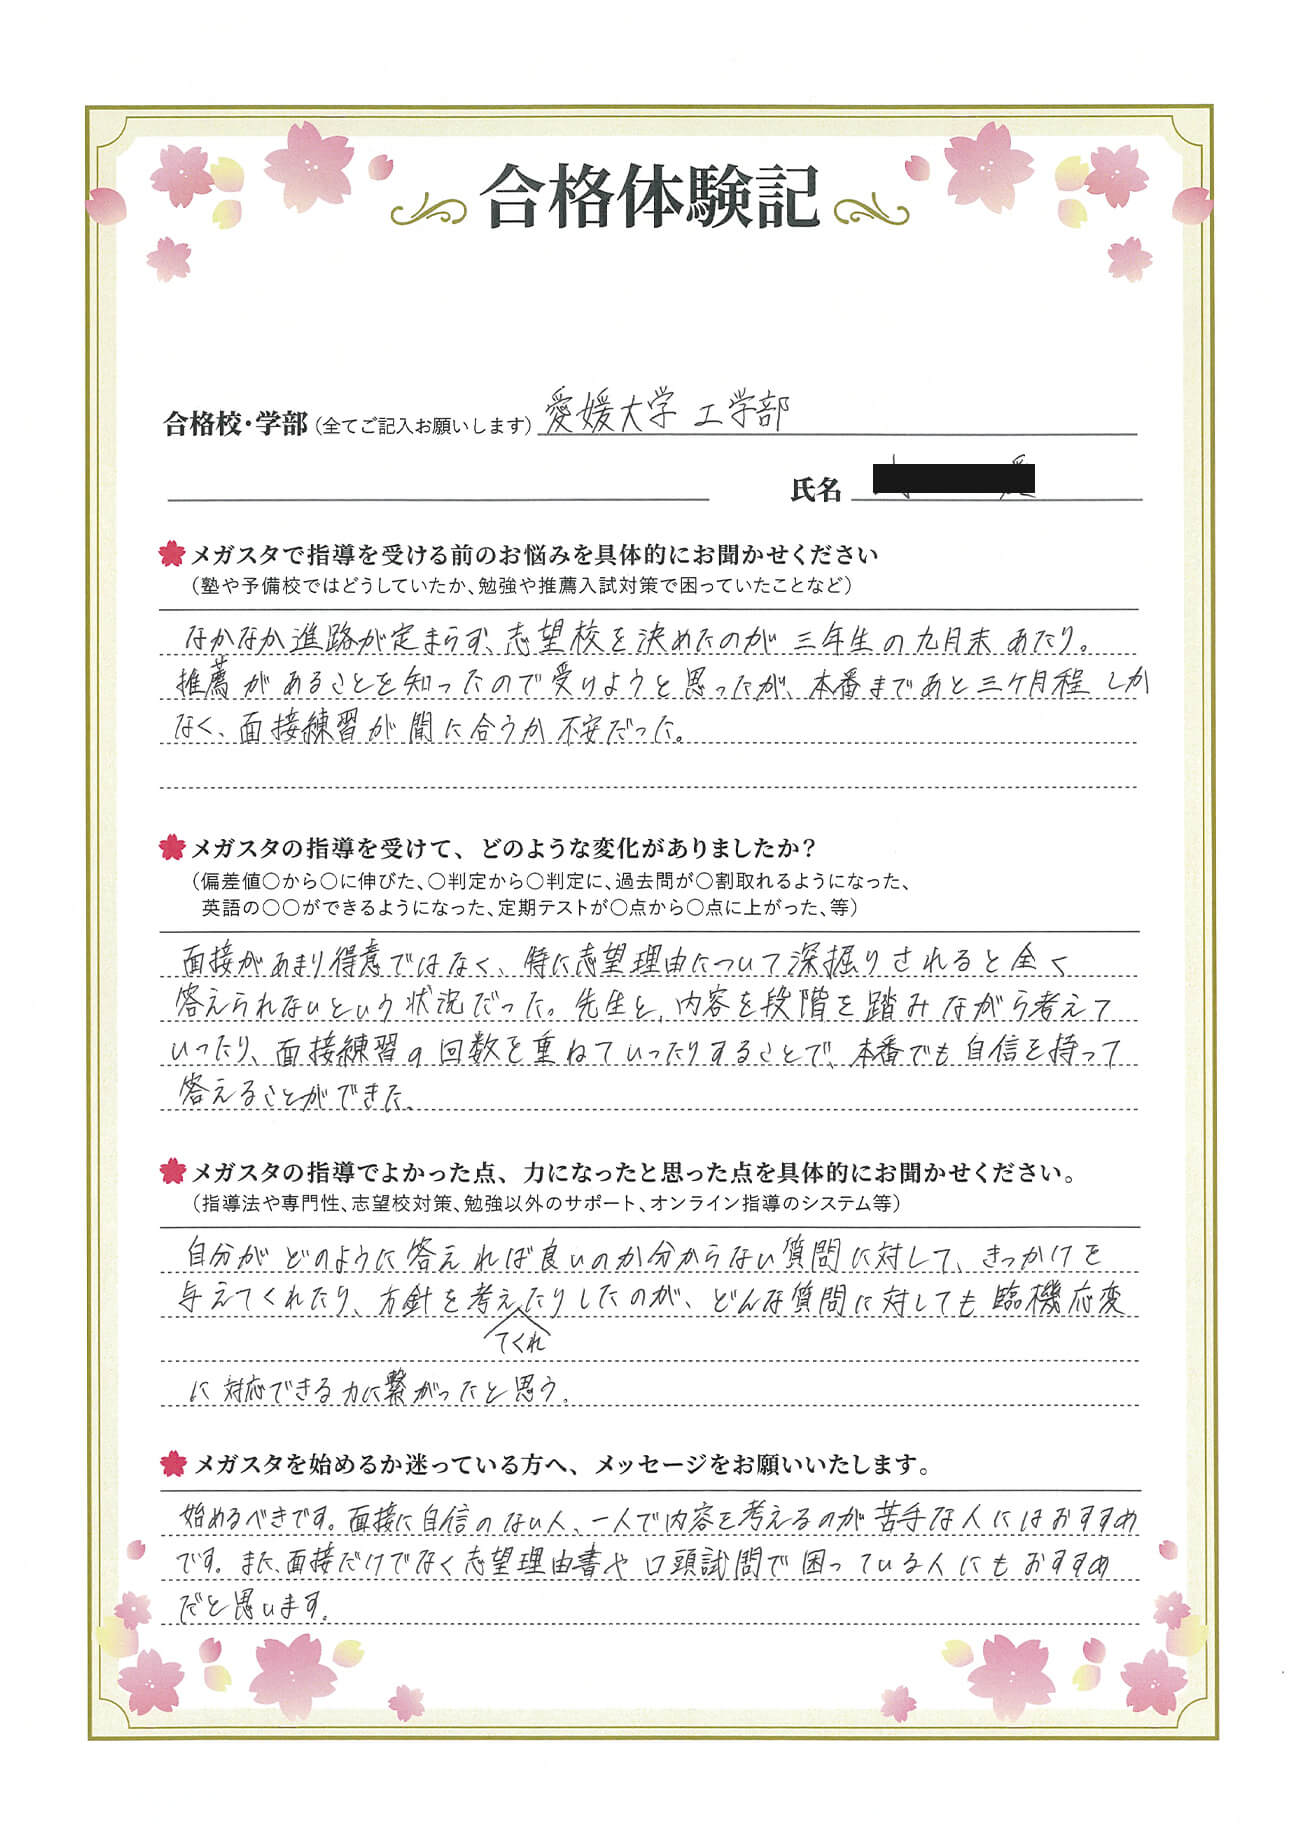 合格体験記
合格校・学部(全てご記入お願いします) 愛媛大学 工学部
氏名
メガスタで指導を受ける前のお悩みを具体的にお聞かせください
(塾や予備校ではどうしていたか、勉強や推薦入試対策で困っていたことなど)
なかなか進路が定まらず、志望校を決めたのが三年生の九月末あたり。
推薦があることを知ったので受けようと思ったが、本番まであと三ケ月程しか
なく、面接練習が間に合うか不安だった。
メガスタの指導を受けて、どのような変化がありましたか?
(偏差値○から○に伸びた、○判定から○判定に、過去問が○割取れるようになった、
英語の○○ができるようになった、定期テストが○点から○点に上がった、等)
面接があまり得意ではなく、特に志望理由について深掘りされると全く
答えられないという状況だった。先生と、内容を段階を踏みながら考えて
いったり、面接練習の回数を重ねていったりすることで、本番でも自信を持って
答えることができた。
メガスタの指導でよかった点、力になったと思った点を具体的にお聞かせください。
(指導法や専門性、志望校対策、勉強以外のサポート、オンライン指導のシステム等)
自分がどのように答えれば良いのか分からない質問に対して、きっかけを
与えてくれたり、方針を考えたりしたのが、どんな質問に対しても臨機応変
てくれ
に対応できる力に繋がったと思う。
メガスタを始めるか迷っている方へ、メッセージをお願いいたします。
始めるべきです。面接に自信のない人、一人で内容を考えるのが苦手な人にはおすすめ
です。また、面接だけでなく志望理由書や口頭試問で困っている人にもおすすめ
だと思います。